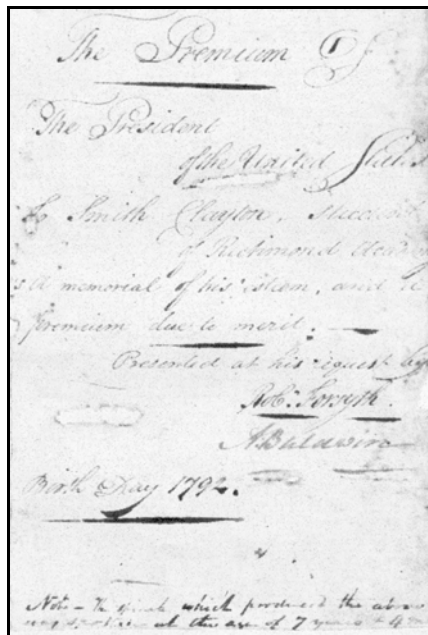 The Premium Of
The President
of the United States
To Smith Clayton, Student
of Richmond Academy
as a memorial of his esteem, and a
premium due to merit.
Presented at his request by
Robt. Forsyth.
A Baldwin
Birth Day 1792.
Note - the speech which produced the above
was spoken at the age of 7 years & 4 m